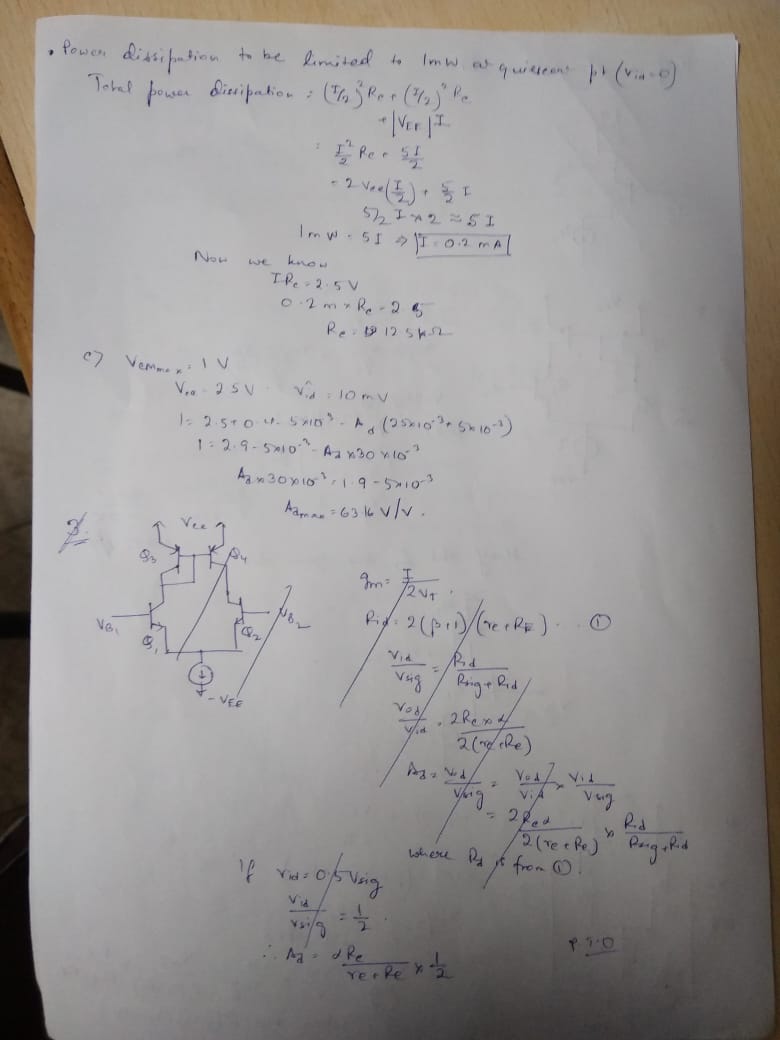 • Power dissipation to be limited to 1mW at quiescent pt (Vid=0)
Total power dissipation : (I/2)² Rc + (I/2)² Rc
+ |VEE| I
: I²/2 Rc + 5I/2
= 2 Vcc (I/2) + 5/2 I
5/2 I × 2 ≈ 5 I
1mW = 5I ⇒ I = 0.2 mA
Now we know
IRc = 2.5 V
0.2 m × Rc = 2.5
Rc = 12.5 kΩ
c) VCMmax = 1 V
Vcc = 2.5V v̂id = 10 mV
1 = 2.5 + 0.4 - 5×10⁻³ - Ad (25×10⁻³ + 5×10⁻³)
1 = 2.9 - 5×10⁻³ - Ad × 30 × 10⁻³
Ad × 30×10⁻³ = 1.9 - 5×10⁻³
Admax = 63.16 V/V.
3.
Vcc
Q3 Q4
VB1 Q1 Q2 VB2
- VEE
gm = I/2VT .
Rid = 2(β+1)(re+RE) . . . ①
Vid/Vsig = Rid/Rsig + Rid
Vod/Vid = 2Rc × α/2(re+Re)
Ad = Vod/Vsig = Vod/Vid × Vid/Vsig
= 2Rcα/2(re+Re) × Rid/Rsig+Rid
where Rid is from ①.
If vid = 0.5 Vsig
Vid/Vsig = 1/2 .
∴ Ad = αRc/re+Re × 1/2
P.T.O